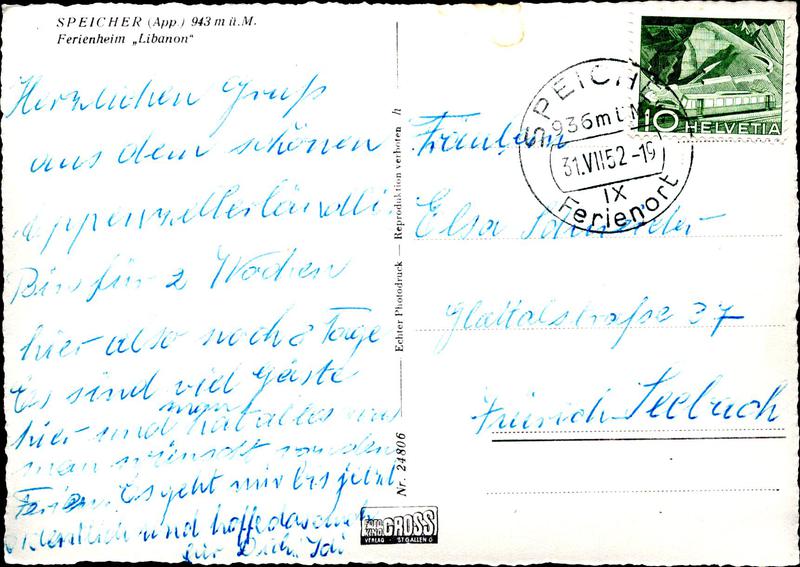 SPEICHER (App.) 943 m ü. M.
Ferienheim „Libanon"
Herzlichen Gruß
aus dem schönen
Appenzellerländli.
Bin für 2 Wochen
hier also noch 8 Tage
Es sind viel Gäste
hier und man hat alles was
man wünscht
Ferien. Es geht mir bis jetzt
ordentlich und hoffe das auch
für Dich.
Nr. 24806 Echter Photodruck — Reproduktion verboten h
GROSS
VERLAG ST GALLEN
SPEICHER
936 m ü M
31.VII 52 -19
IX
Ferienort
10 HELVETIA
Fräulein
Elsa Schneider
Glattalstraße 37
Zürich Seebach